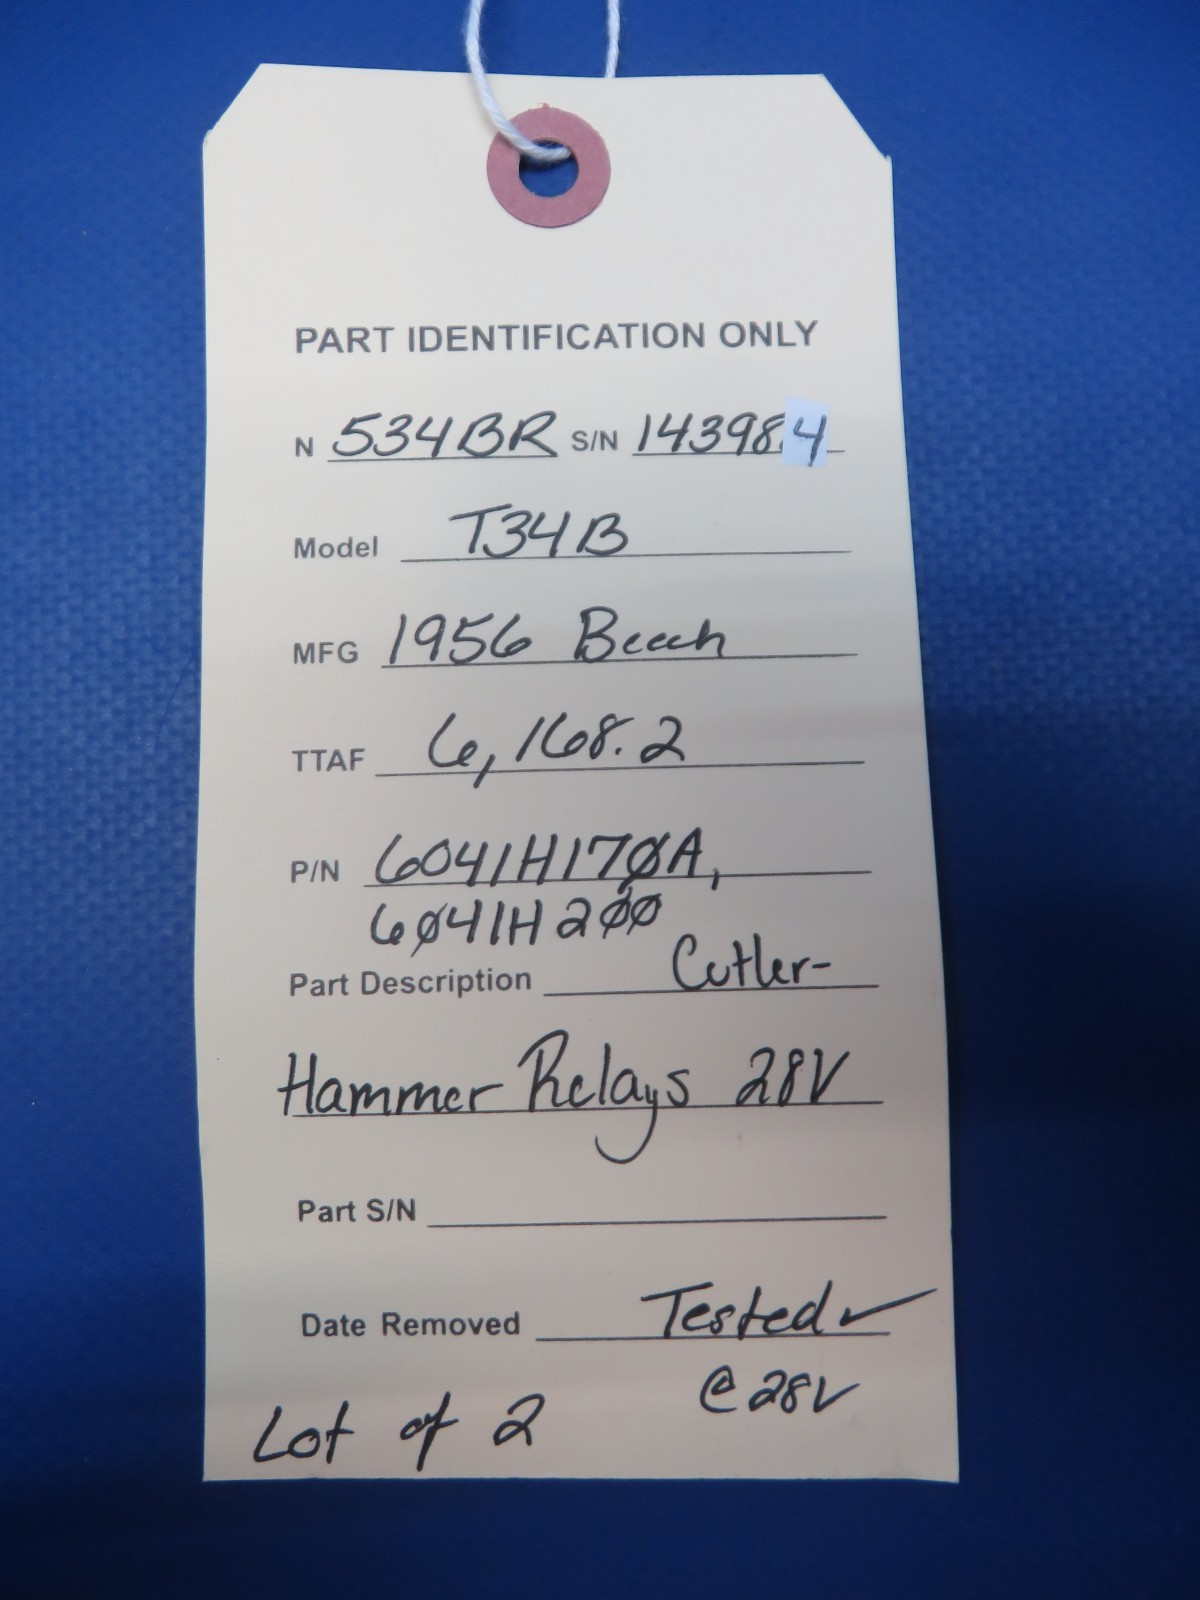 PART IDENTIFICATION ONLY
N 534BR S/N 143984
Model T34B
MFG 1956 Beech
TTAF 6,168.2
P/N 6041H17ØA,
6Ø41H2ØØ
Part Description Cutler-
Hammer Relays 28V
Part S/N
Date Removed Tested ✓
@ 28V
Lot of 2